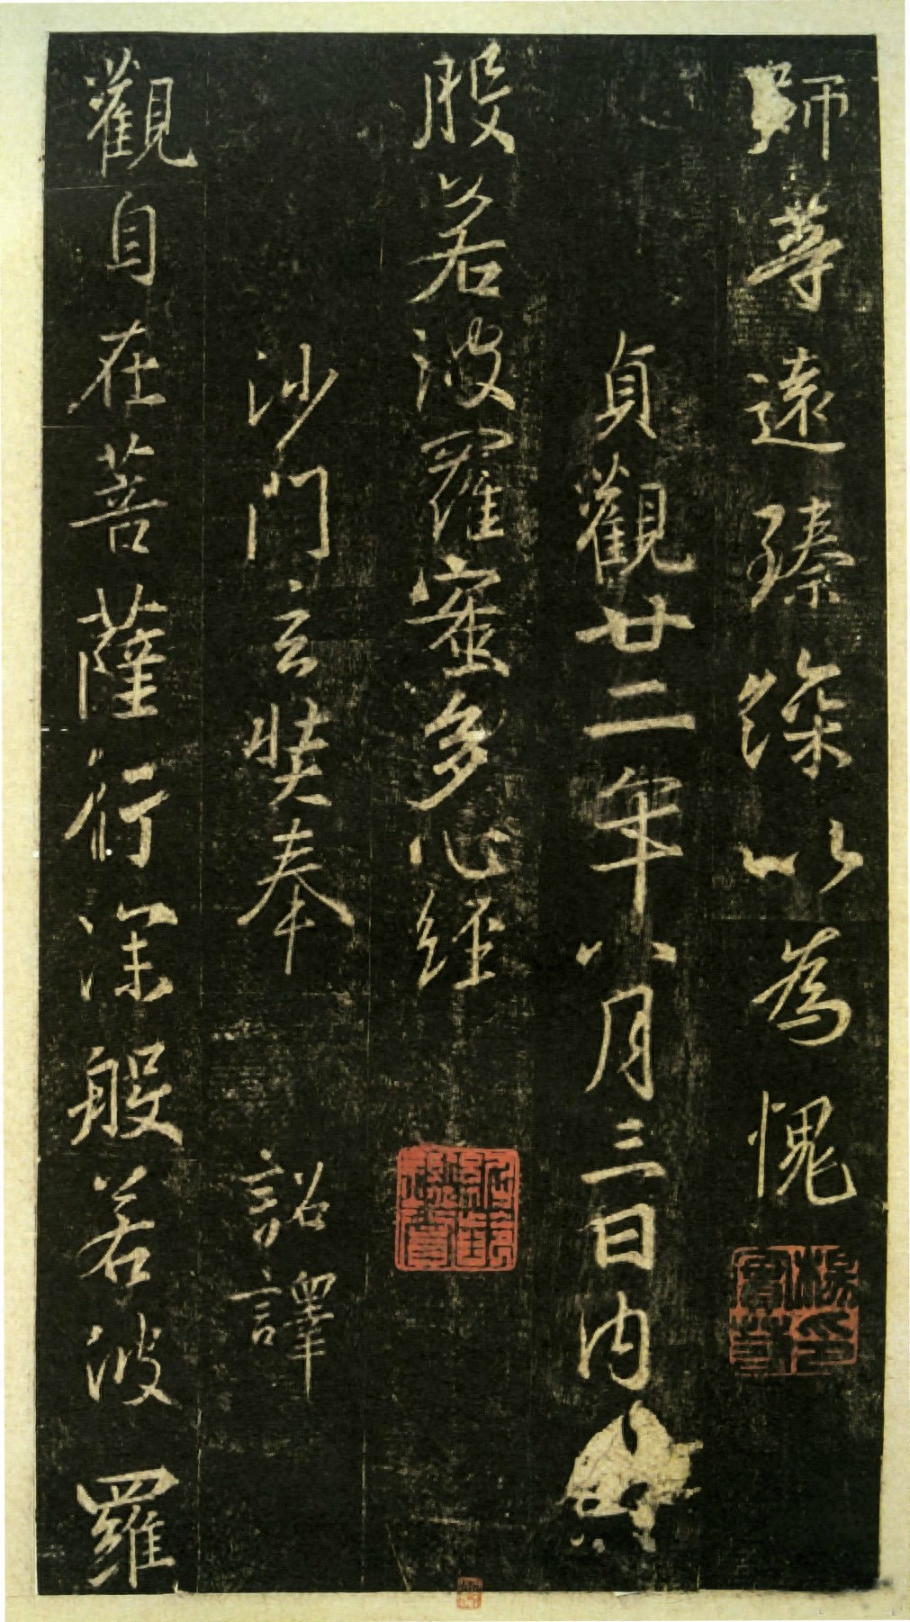 師等遠臻深以為愧
貞觀廿二年八月三日内
般若波羅蜜多心經
沙門玄奘奉 詔譯
觀自在菩薩行深般若波羅